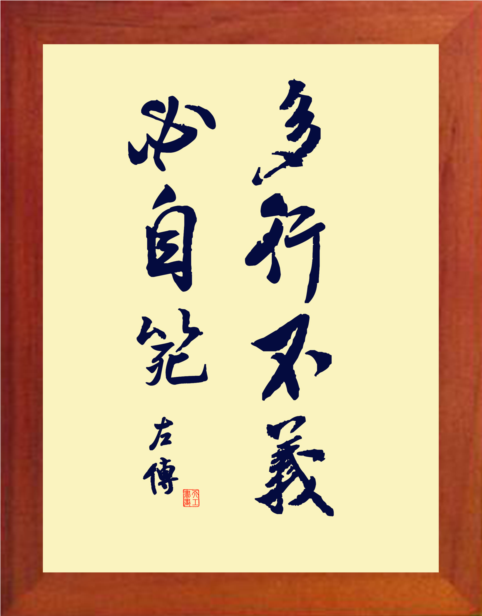 多行不義
必自毙
左傳